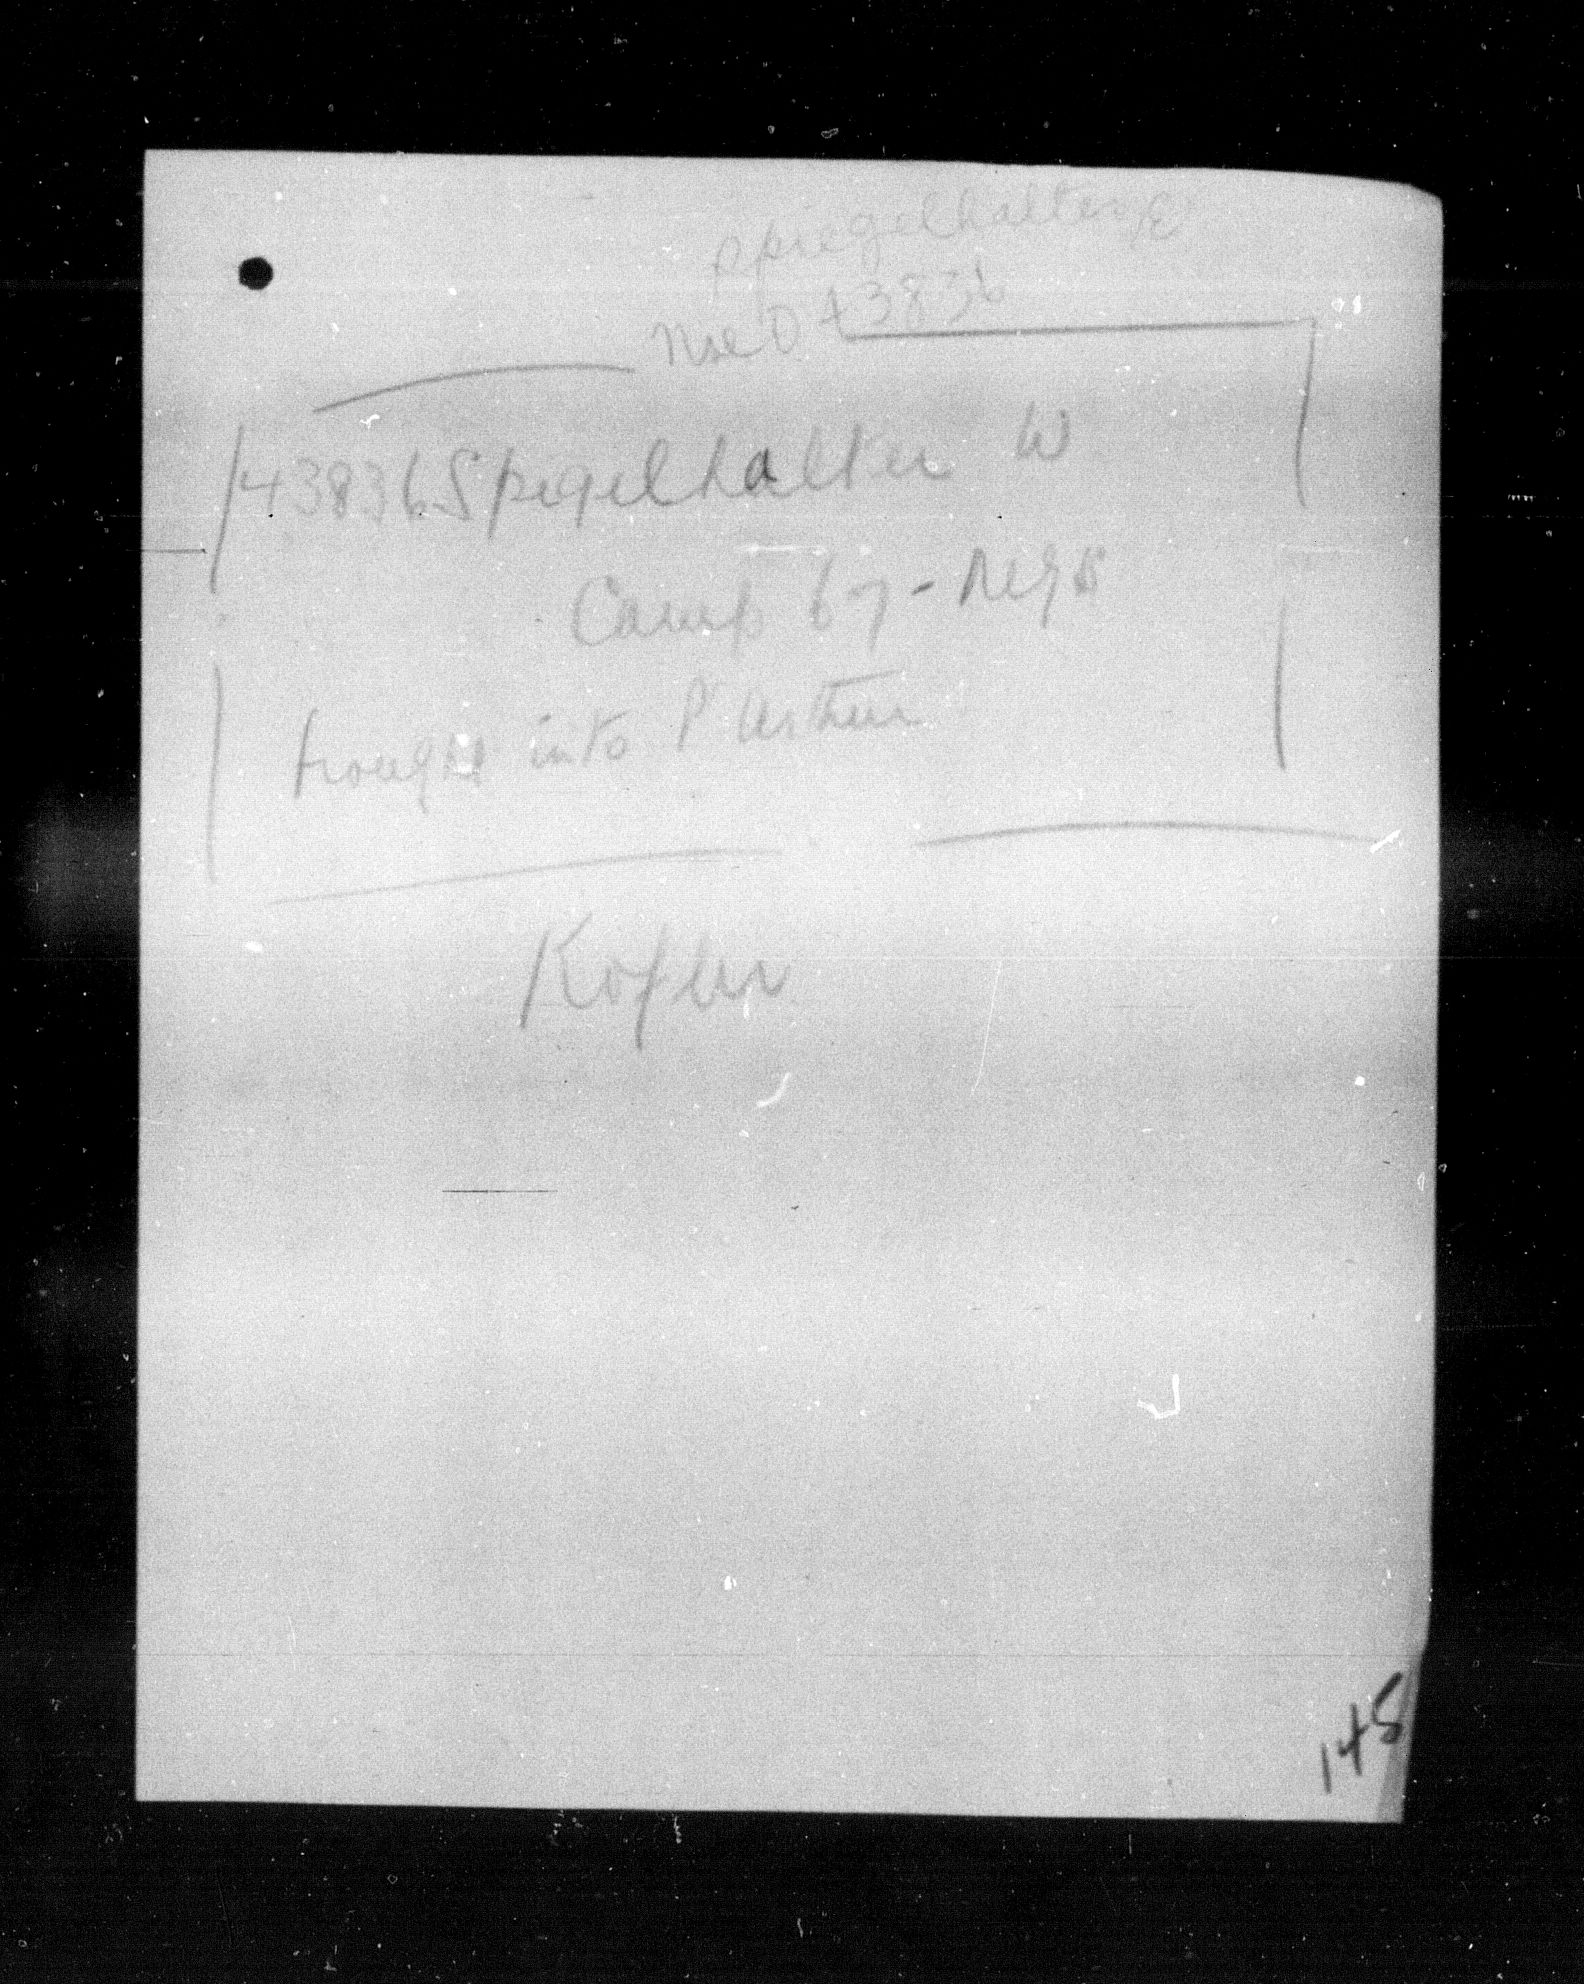 Spiegelhalter, E
43836
43836 Spigelhalter W
Camp 67 - Neys
brought into P Arthur
Kofler
148